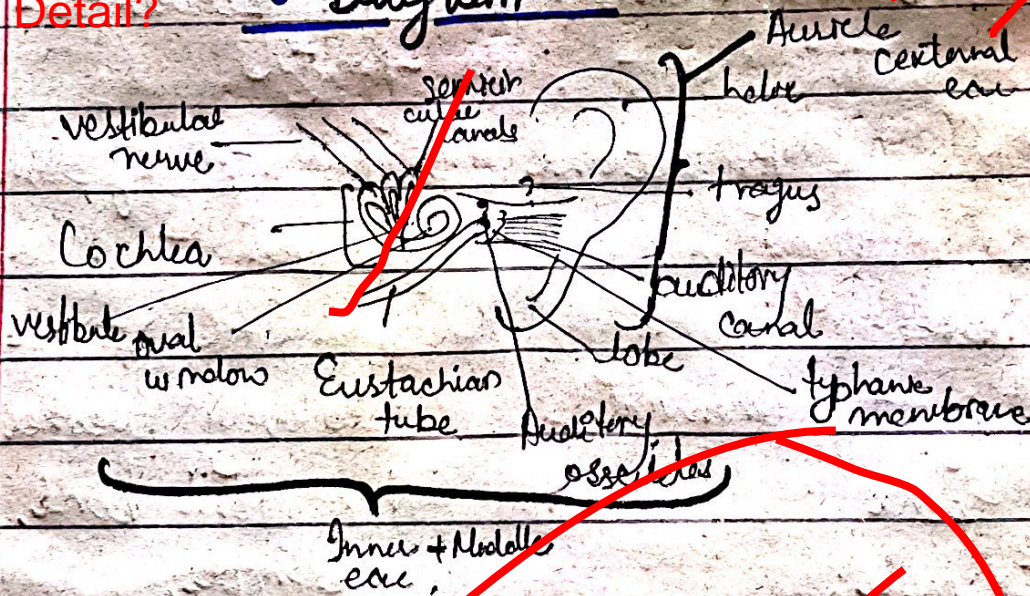 Detail?
Diagram
Auricle
(external
ear
helix
semicir
cular
canals
vestibular
nerve
?
tragus
Cochlea
auditory
canal
vestibule
oval
window
lobe
Eustachian
tube
typhanic
membrane
Auditory
ossicles
Inner + Middle
ear